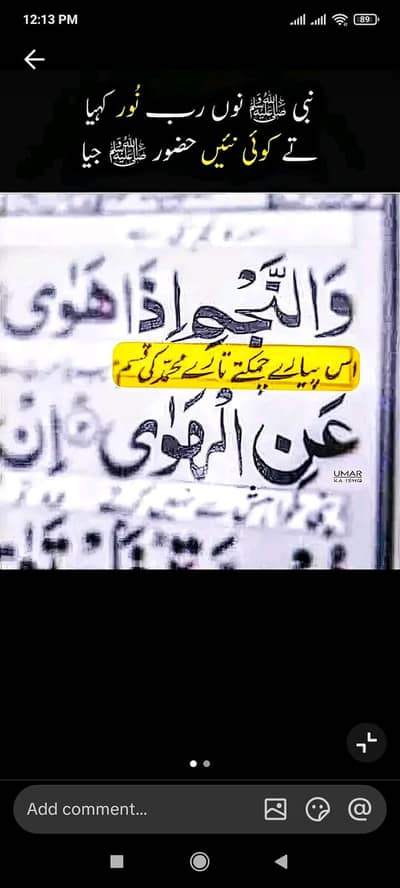 12:13 PM
89
نبی ﷺ نوں رب نُور کہیا
تے کوئی نئیں حضور ﷺ جیا
وَالنَّجْمِ اِذَا هَوٰى
اس پیارے چمکتے تارے محمّد کی قسم
عَنِ الْهَوٰى اِنْ
UMAR
KA ISHQ
Add comment...
@